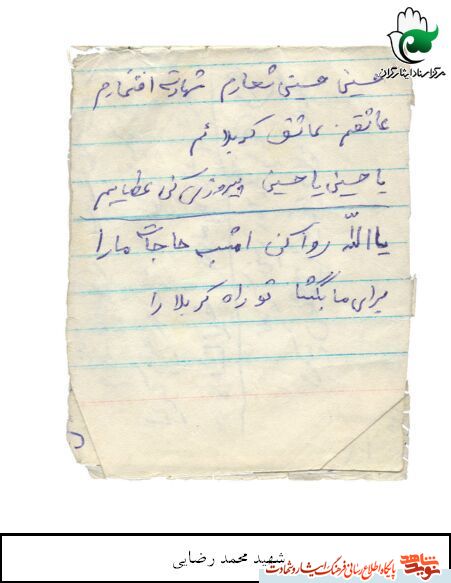 مرکز اسناد ایثارگران
حسینی حسینی شعارم شهادت افتخارم
عاشقم عاشق کربلائم
یا حسین یا حسین پیروزی کن عطایم
یا الله روا کن امشب حاجات ما را
برای ما بگشا تو راه کربلا را
شهید محمد رضایی
نوید شاهد
پایگاه اطلاع رسانی فرهنگ ایثار و شهادت